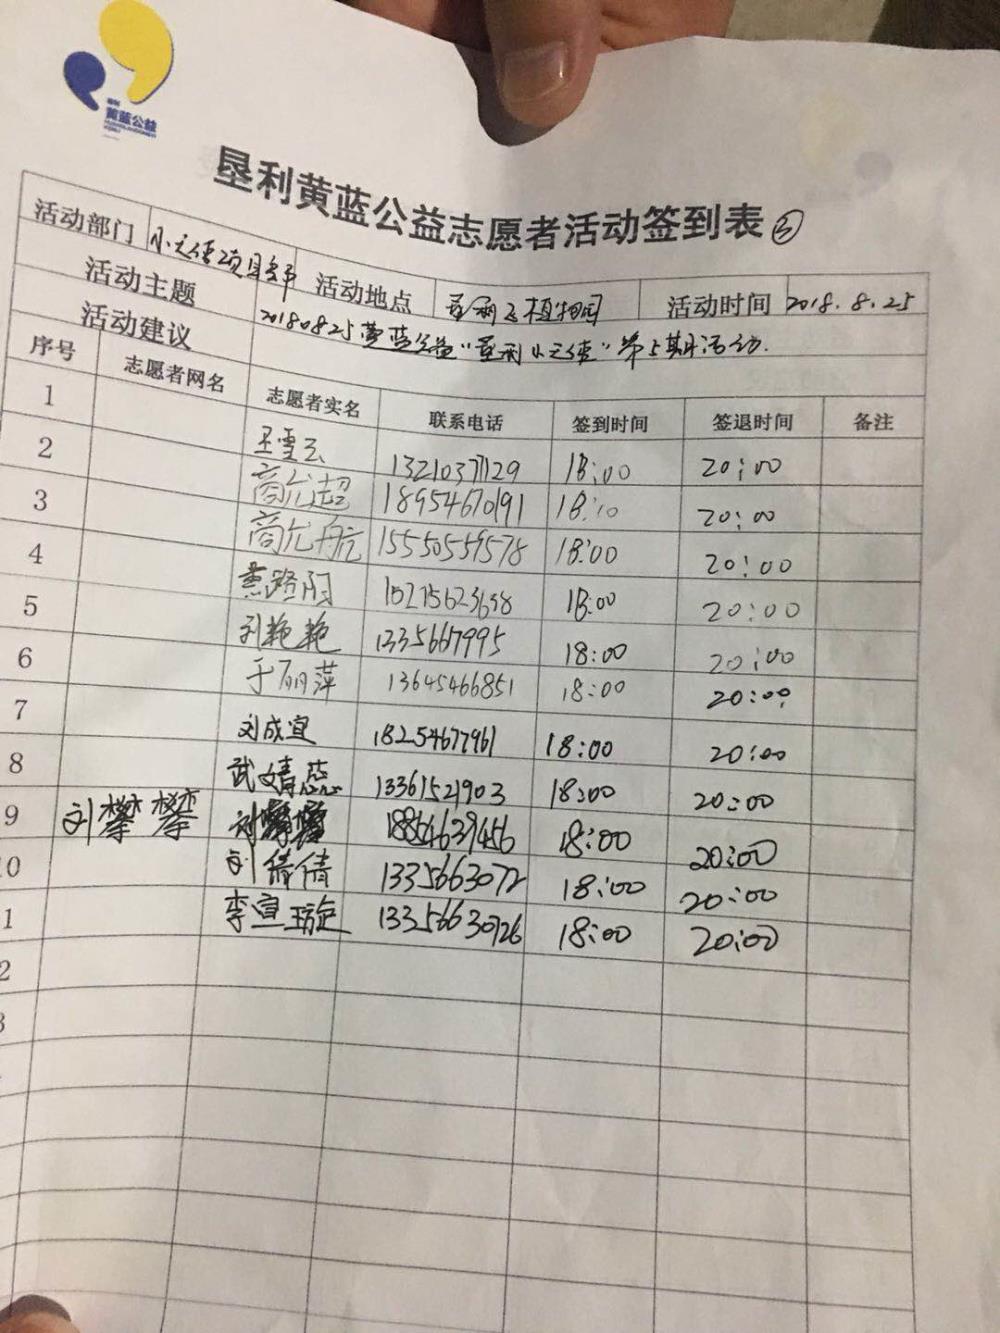 黄蓝公益
垦利黄蓝公益志愿者活动签到表 ⑤
活动部门 小天使项目部 活动地点 植物园 活动时间 2018.8.25
活动主题 20180825黄蓝公益“垦利小天使”第5期活动.
活动建议
序号 志愿者网名 志愿者实名 联系电话 签到时间 签退时间 备注
1 王雪云 13210377129 18:00 20:00
2 商允超 18954670191 18:10 20:00
3 商允航 15550559578 18:00 20:00
4 18:00 20:00
5 刘艳艳 18:00 20:00
6 于丽萍 13645466851 18:00 20:00
7 刘成宜 18254677961 18:00 20:00
8 武婧蕊 13361521903 18:00 20:00
9 刘攀攀 18854639456 18:00 20:00
10 刘倩倩 1335663072 18:00 20:00
11 李宣璇 13356630726 18:00 20:00